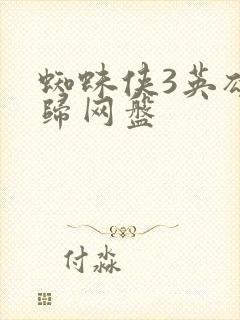 蜘蛛侠3英
归网盘
付淼